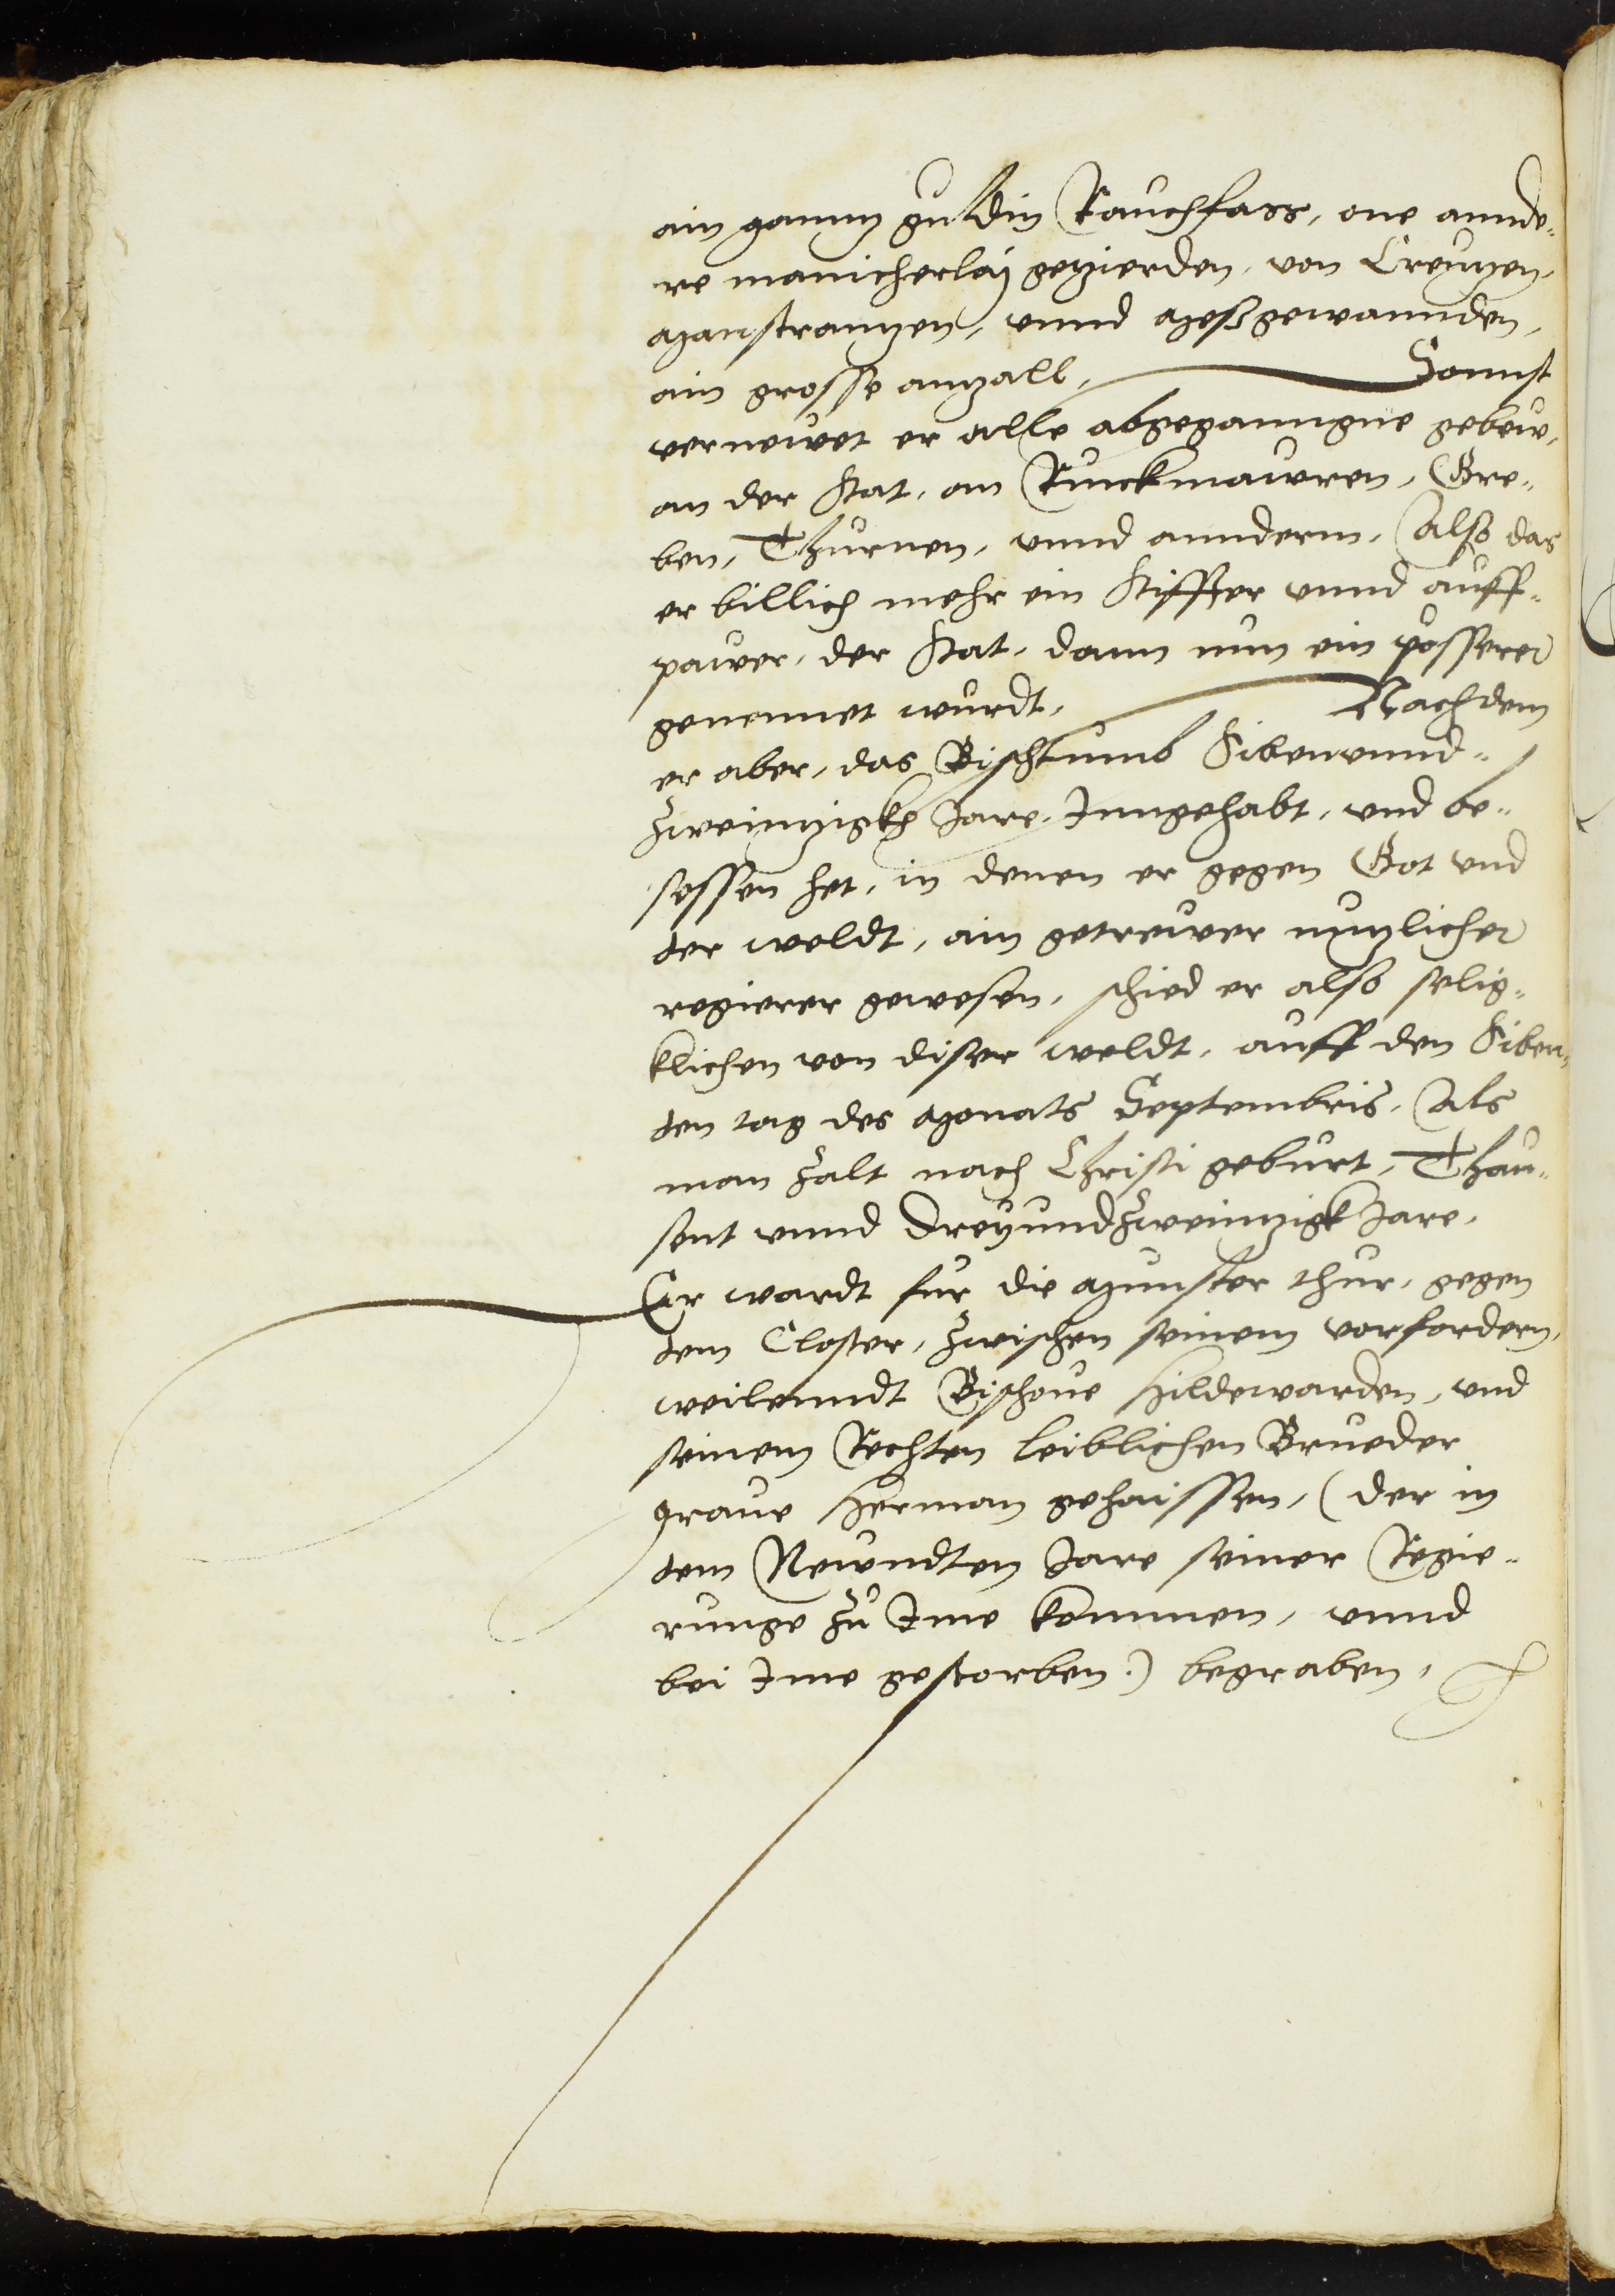 ain gannz guldin Rauchfass, one annde„
re manicherlaÿ gezierden, von Creuzen,
Manstranzen, vnnd Meßgewannden,
ain grosse anzall, Sonnst
vernewet er alle abgeganngne gebew,
an der stat, an Rinckmawren, Gre„
ben, Thurnen, vnnd annderm, Also das
er billich mehr ein stiffter vnnd auff„
pawer, der stat, dann nun ein pösserer
genennet wurdt, Nachdem
er aber, das Bischtumb Sibenvnnd„
Zweinzigkh Jare, Inngehabt, vnd be„
sessen het, in denen er gegen Got vnd
der weldt, ain getrewer nuzlicher
regierer gewesen, schied er also selig„
klichen von diser weldt, auff den Siben„
den tag des Monats Septembris, Als
man Zalt nach Christi geburt, Thau„
sent vnnd DreyundZweinzigk Jare,
Er wardt fur die Munster thur, gegen
dem Closter, Zwischen seinem vorfordern,
weilenndt Bischoue Hildewarden, vnd
seinem Rechten leiblichen Brueder
Graue Herman gehaissen, (der in
dem Newndten Jare seiner Regie„
runge Zu Ime kommen, vnnd
bei Ime gestorben:) begraben,